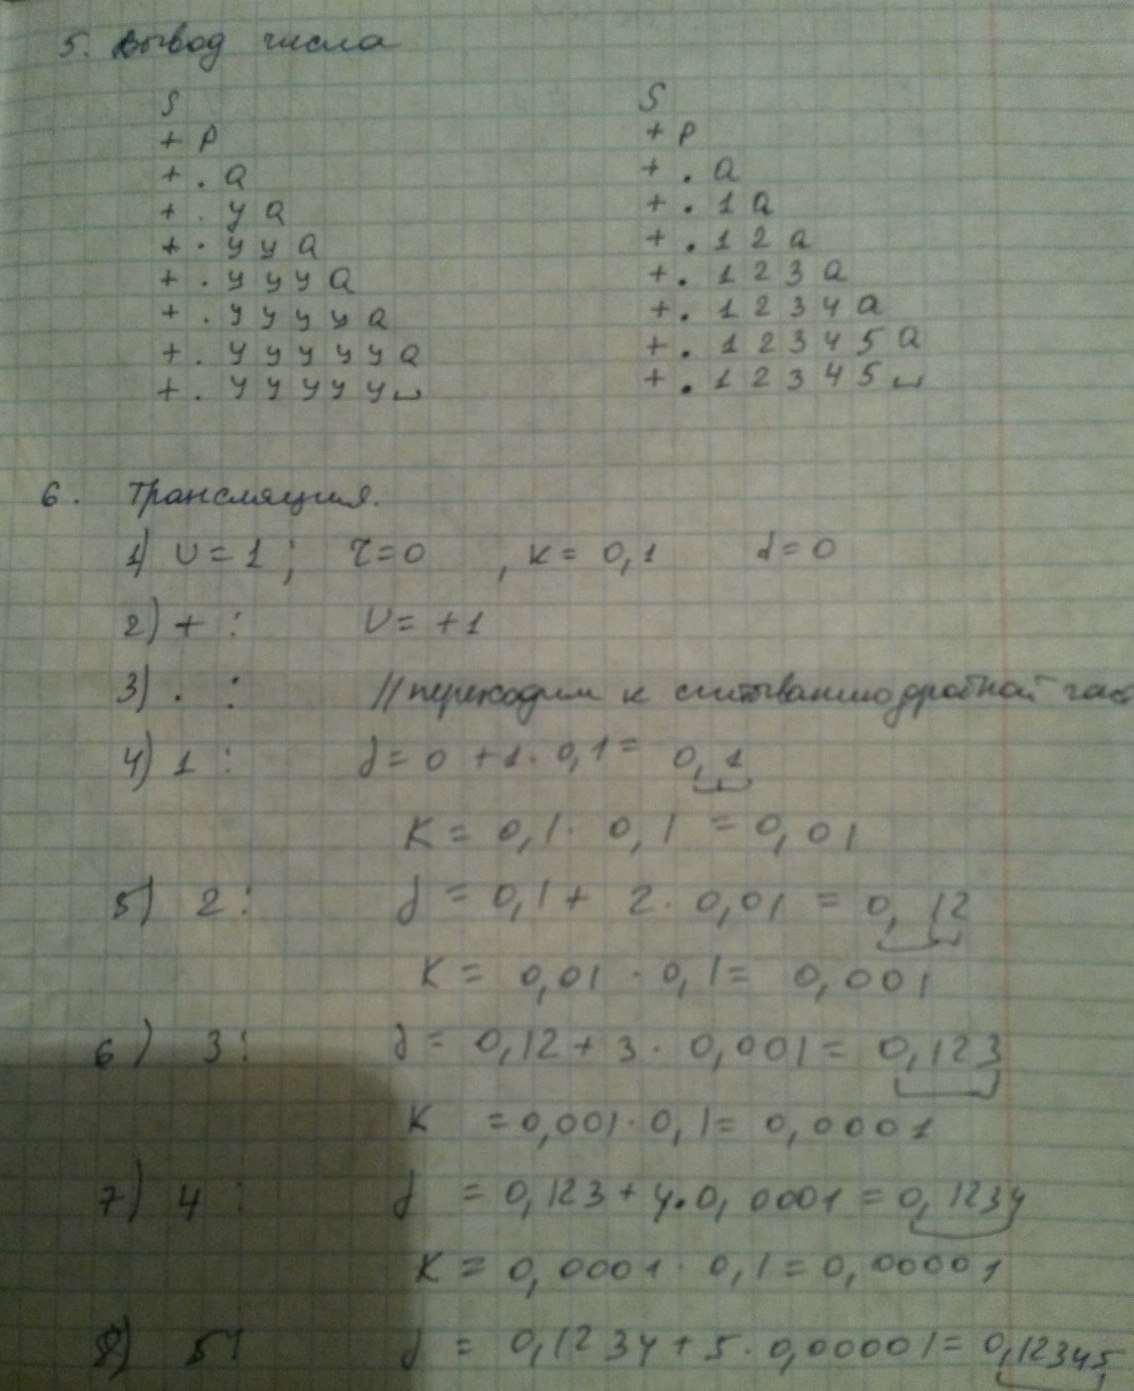 5. Вывод числа
S S
+ P + P
+ . Q + . Q
+ . y Q + . 1 Q
+ . y y Q + . 1 2 Q
+ . y y y Q + . 1 2 3 Q
+ . y y y y Q + . 1 2 3 4 Q
+ . y y y y y Q + . 1 2 3 4 5 Q
+ . y y y y y ␣ + . 1 2 3 4 5 ␣
6. Трансляция.
1) U = 1 ; τ = 0 , K = 0,1 d = 0
2) + : U = +1
3) . : // переходим к считыванию дробной час
4) 1 : d = 0 + 1 · 0,1 = 0,1
K = 0,1 · 0,1 = 0,01
5) 2 : d = 0,1 + 2 · 0,01 = 0,12
K = 0,01 · 0,1 = 0,001
6) 3 : d = 0,12 + 3 · 0,001 = 0,123
K = 0,001 · 0,1 = 0,0001
7) 4 : d = 0,123 + 4 · 0,0001 = 0,1234
K = 0,0001 · 0,1 = 0,00001
8) 5 : d = 0,1234 + 5 · 0,00001 = 0,12345